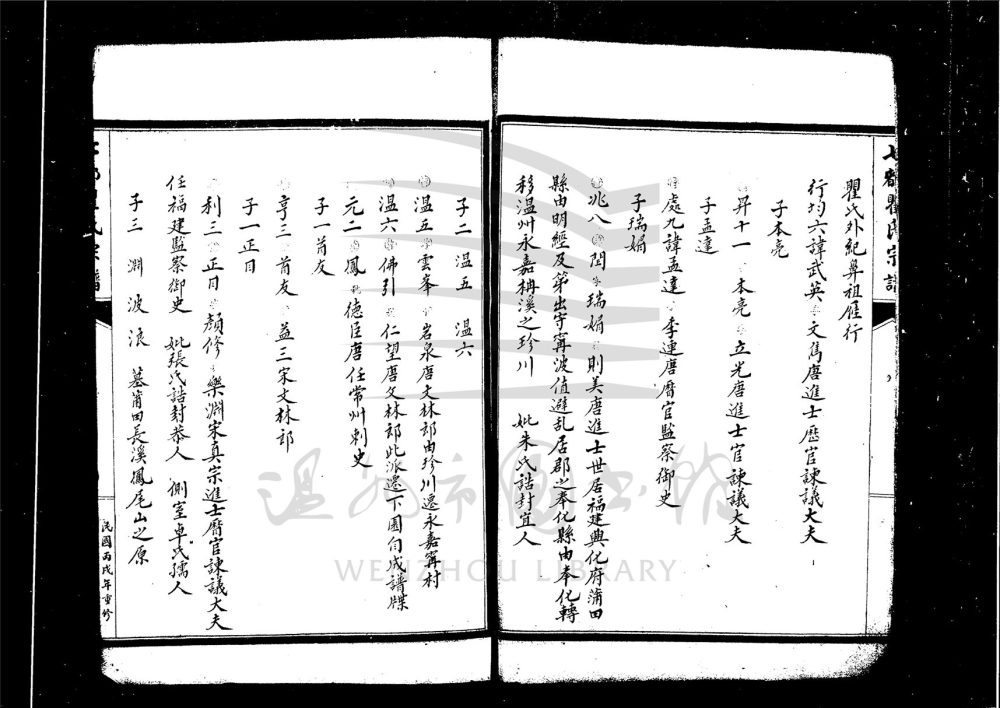 七都瞿氏宗譜
瞿氏外紀鼻祖雁行
行均六諱武英 文雋唐進士歷官諫議大夫
子本亮
昇十一 本亮 立光唐進士官諫議大夫
子孟達
處九諱孟達 季連唐曆官監察御史
子瑞娟
兆八 閏 瑞娟 則美唐進士世居福建興化府蒲田
縣由明經及弟出守寧波值避乱居郡之奉化縣由奉化轉
移温州永嘉柟溪之珍川 妣朱氏誥封宜人
子二 温五 温六
温五 雲峯 岩泉唐文林郎由珍川遷永嘉寗村
温六 佛引 仁望唐文林郎此派遷下園自成譜牒
元二 鳳 德臣唐任常州刺史
子一茼友
亨三 茼友 益三宋文林郎
子一正目
利三 正目 顏修 樂淵宋真宗進士曆官諫議大夫
任福建監察御史 妣張氏誥封恭人 側室卓氏孺人
子三 淵 波 浪 墓莆田長溪鳳尾山之原
民國丙戌年重修
温州市圖書館
WENZHOU LIBRARY